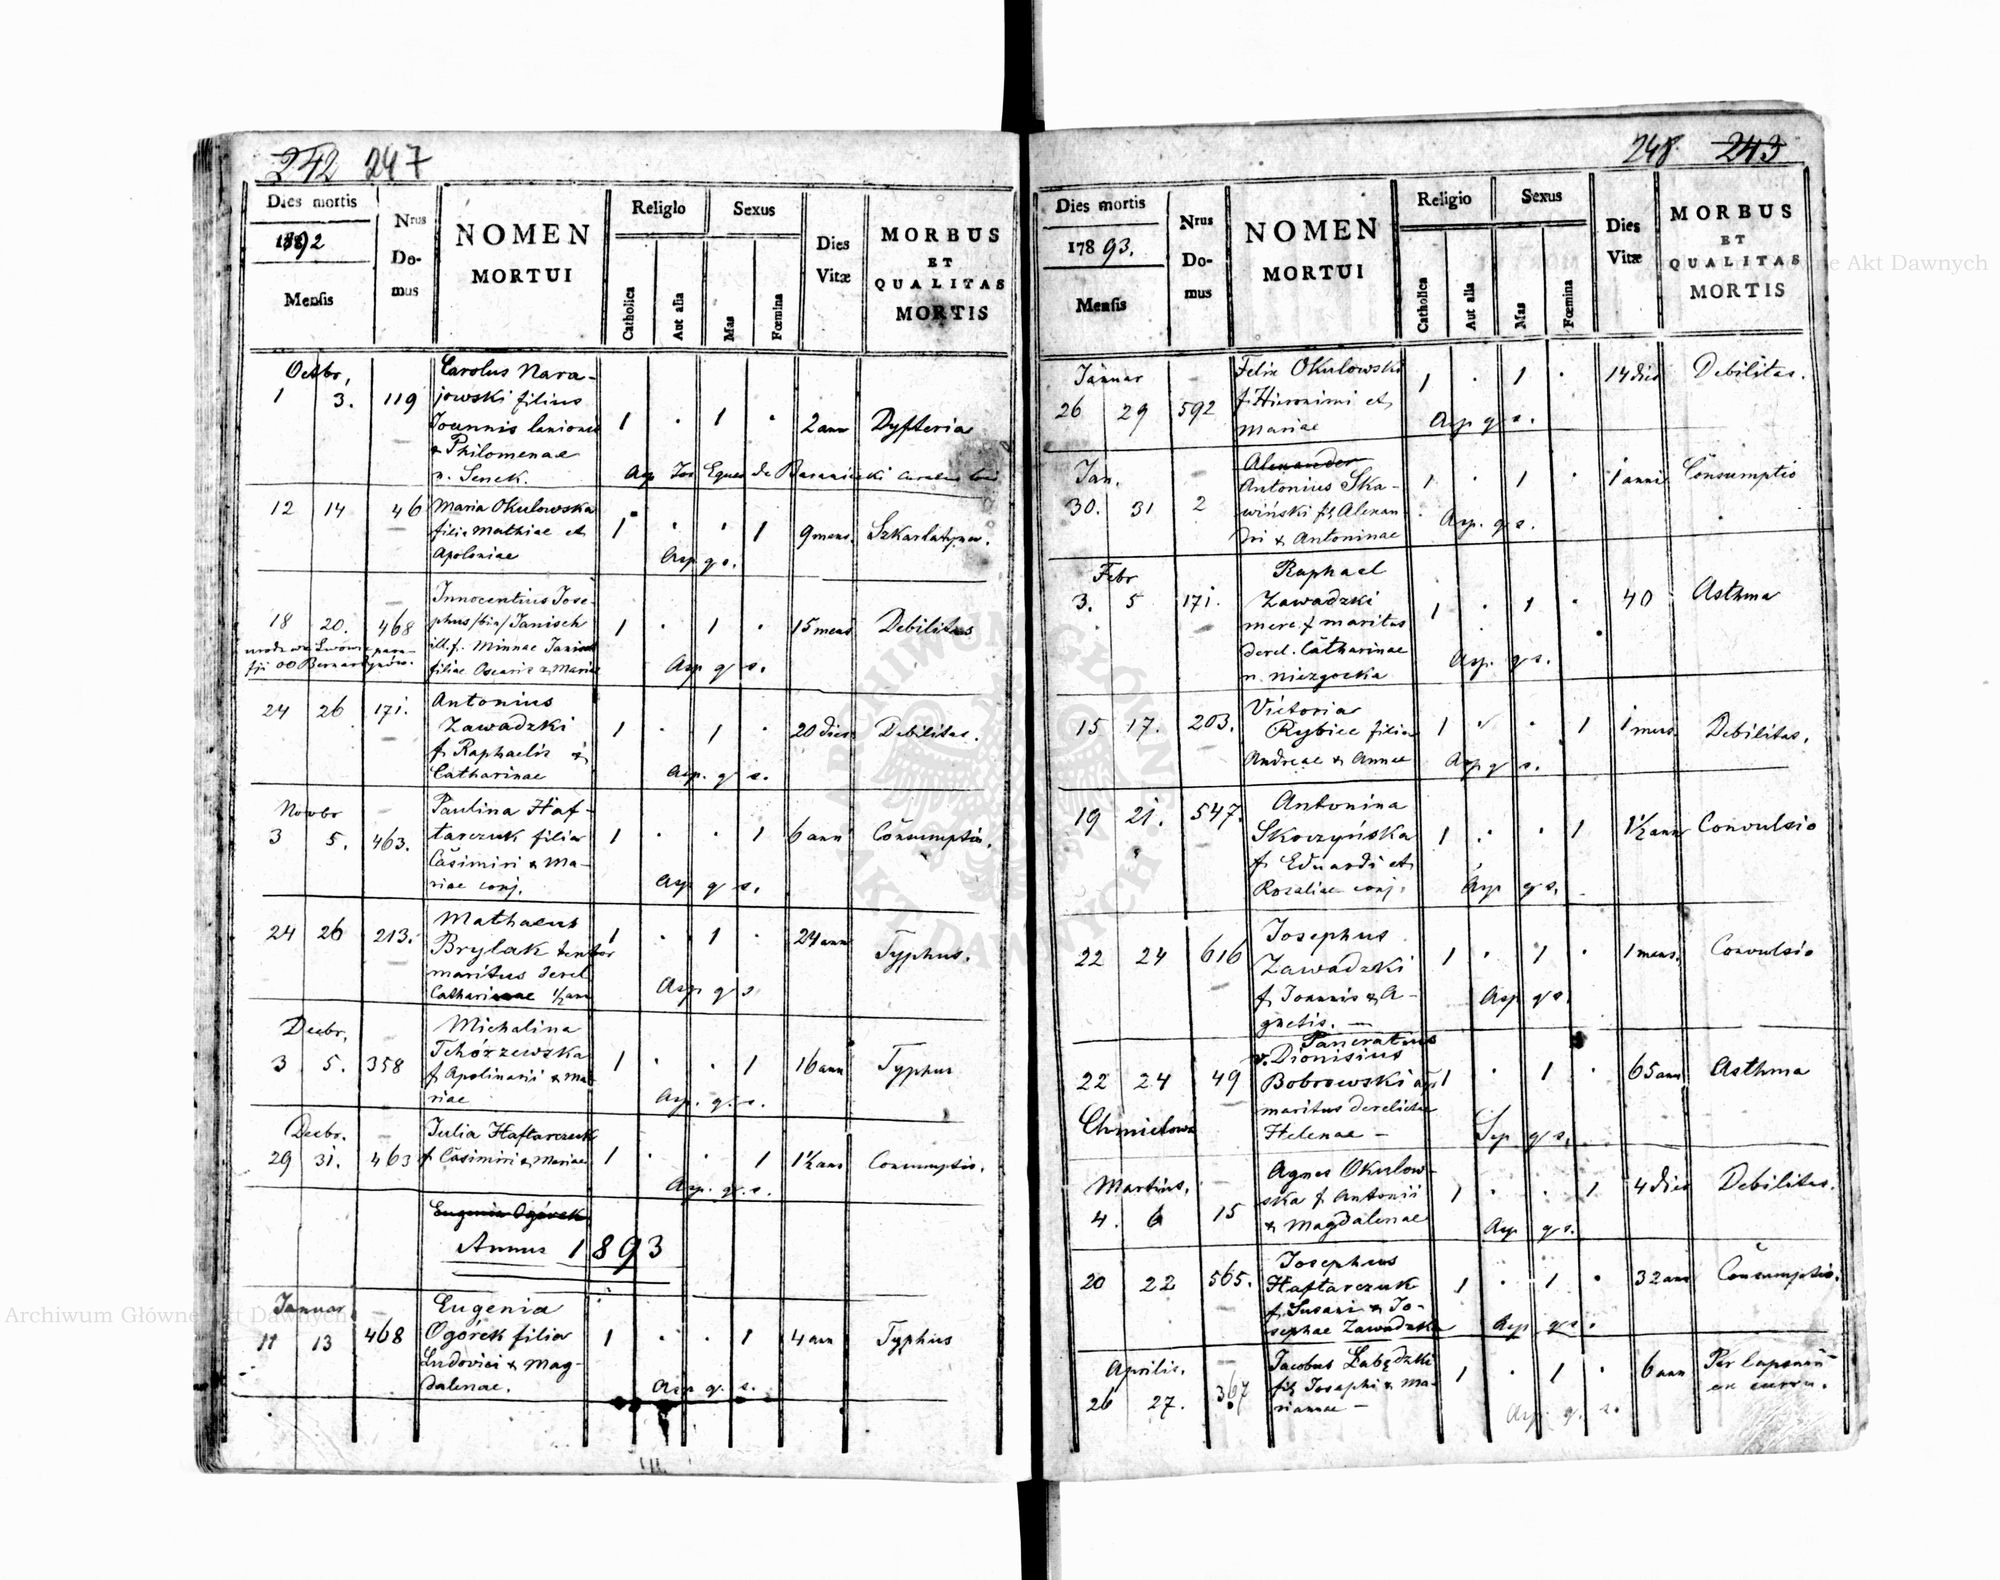 242 247
Dies mortis
1892
Mensis
Nrus
Do-
mus
NOMEN
MORTUI
Religio
Catholica
Aut alia
Sexus
Mas
Fœmina
Dies
Vitæ
MORBUS
ET
QUALITAS
MORTIS
Octbr,
1 3. 119
Carolus Nara-
jowski filius
Joannis lanionis
& Philomenae
n. Senek.
1 . 1 . 2 ann Dyfteria
Asp Jos Eques de Baraniecki
12 14 46
Maria Okulowska
filia Mathiae et
Apoloniae
1 . . 1 9 mens. Szkarlatyna.
Asp q s.
18 20. 468
Innocentius Jose-
phus /bin/ Janisch
ill. f. Minnae Janisch
filiae Oscaris & Mariae
1 . 1 . 15 mens Debilitas
Asp q s.
24 26 171.
Antonius
Zawadzki
f. Raphaelis &
Catharinae
1 . 1 . 20 dies Debilitas.
Asp. q s.
Novbr
3 5. 463.
Paulina Haf-
tarczuk filia
Casimiri & Ma-
riae conj.
1 . . 1 6 ann Consumptio.
Asp q s.
24 26 213.
Mathaeus
Brylak
maritus derel
Catharinae ½ ann
1 . 1 . 24 ann Typhus.
Asp q s
Decbr,
3 5. 358
Michalina
Tchórzewska
f Apolinarii & Ma
riae
1 . . 1 16 ann Typhus
Asp. q. s.
Decbr.
29 31. 463
Julia Haftarczuk
f Casimiri & Mariae
1 . . 1 1½ ann Consumptio.
Asp. q. s.
Eugenia Ogórek
Annus 1893
Januar
11 13 468
Eugenia
Ogórek filia
Ludovici & Mag-
dalenae.
1 . . 1 4 ann Typhus
Asp q. s.
248 243
Dies mortis
178 93.
Mensis
Nrus
Do-
mus
NOMEN
MORTUI
Religio
Catholica
Aut alia
Sexus
Mas
Fœmina
Dies
Vitæ
MORBUS
ET
QUALITAS
MORTIS
Januar
26 29 592
Felix Okulowski
f. Hieronimi et
Mariae
1 . 1 . 14 dies Debilitas.
Asp q s.
Jan.
30. 31 2
Alexander
Antonius Ska-
wiński fil Alexan-
dri & Antoninae
1 . 1 . 1 anni Consumptio
Asp. q s.
Febr
3. 5 171.
Raphael
Zawadzki
merc. f maritus
derel. Catharinae
n. Niezgocka
1 . 1 . 40 Asthma
Asp. q s.
15 17. 203.
Victoria
Rybicc filia
Andreae & Annae
1 . . 1 1 mens Debilitas.
Asp q s.
19 21. 547.
Antonina
Skoczyńska
f. Eduardi et
Rozaliae conj.
1 . . 1 1½ ann Convulsio
Asp q s.
22 24 616
Josephus
Zawadzki
f. Joannis & A-
gnetis. —
1 . 1 . 1 mens. Convulsio
Asp q s.
22 24 49
Chmielowa
Pancratius
v. Dionisius
Bobrowski
maritus derelictae
Helenae —
1 . 1 . 65 ann Asthma
Sep q s.
Martius.
4. 6 15
Agnes Okulow-
ska f Antonii
& Magdalenae
1 . . 1 4 dies Debilitas.
Asp q s.
20 22 565.
Josephus
Haftarczuk
f. Susani & Jo-
sephae Zawadzka
1 . 1 . 32 ann Consumptio.
Asp q s.
Aprilis.
26 27. 367
Jacobus Łabędzki
fil Josephi & Ma-
riannae —
1 . 1 . 6 ann Per lapsum
ex curru.
Asp. q. s.
Archiwum Główne Akt Dawnych
Archiwum Główne Akt Dawnych
ARCHIWUM GŁÓWNE
AKT DAWNYCH